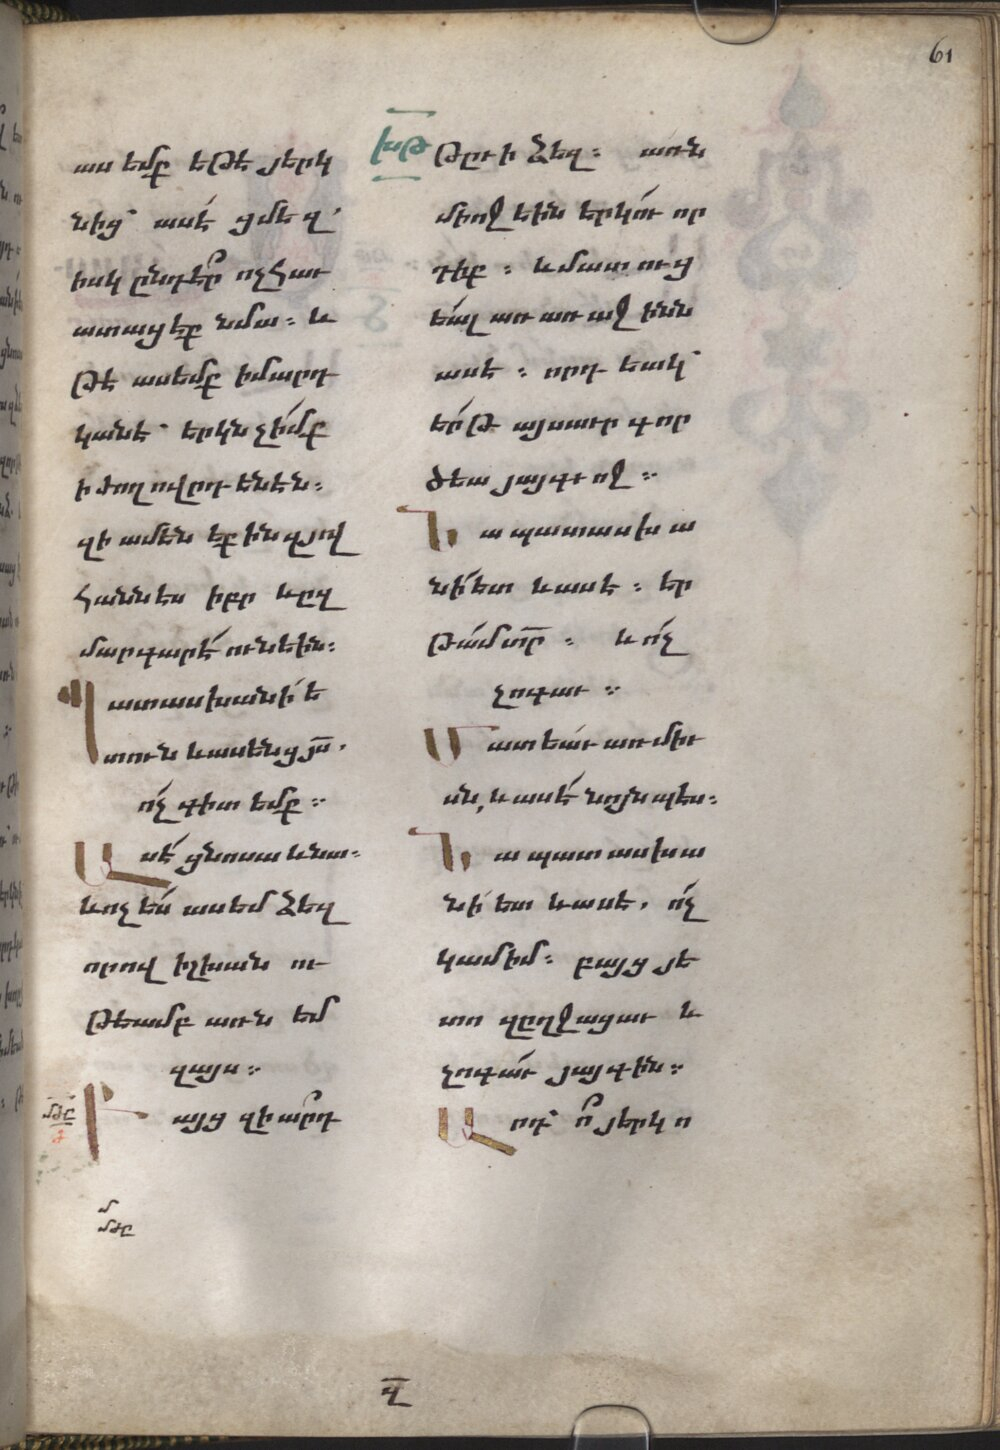 61
ասեմք եթէ յերկ
նից՝ ասէ՛ ցմեզ՝
իսկ ընդէ՞ր ոչ հաւ
ատացէք նմա։ և
թէ ասեմք ի մարդ
կանէ՝ երկնչի՛մք
ի ժողովրդենէն։
զի ամենեքին զյով
հաննես իբր ևըզ
մարգարէ՛ ունեին։
Պատասխանի՛ ե
տուն և ասեն ցյս̅.
ո՛չ գիտեմք։
Ասէ՛ ցնոսա և նա։
և ոչ ե՛ս ասեմ ձեզ
որով իշխանու
թեամբ առնեմ
զայս։
Բայց զիա՞րդ
թըւի ձեզ։ առն
միոջ եին երկու՛ որ
դիք։ և մատուց
եա՛լ առ առաջինն
ասէ։ որդեակ՝
ե՛րթ այսաւր գոր
ծեա յայգւոջ։
Նա պատասխա
նի՛ ետ և ասէ։ եր
թա՛մ տր̅։ և ո՛չ
չոգաւ։
Մատեա՛ւ առ միւ
սն, և ասէ՛ նոյնպէս։
Նա պատասխա
նի՛ ետ և ասէ. ո՛չ
կամիմ։ բայց յե
տո զըղջացաւ և
չոգա՛ւ յայգին։
Արդ՝ ո՞ յերկո
զ̅